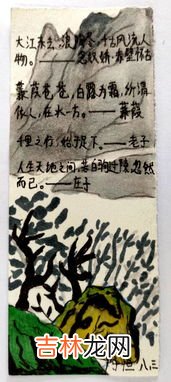 大江东去，浪淘尽，千古风流人
物。——念奴娇·赤壁怀古
蒹葭苍苍，白露为霜，所谓
伊人，在水一方。——蒹葭
千里之行，始于足下。——老子
人生天地之间，若白驹过隙，忽然
而已。——庄子
八三
吉林龙网
www.jldragon.com